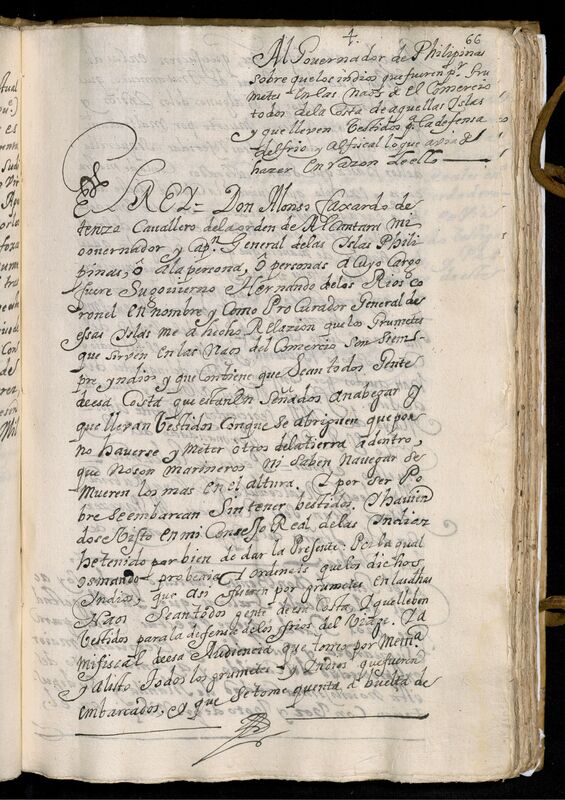 4.
66
Al Governador de Philipinas
sobre que los indios que fueren pr. gru
metes en las naos de el Comercio
todos de la Costa de aquellas Islas
y que lleven Vestidos pa. la defensa
del frio y al fiscal lo que a de
hazer en razon de ello
EL REY = Don Alonso faxardo de
tenza Cavallero de la orden de Alcantara mi
governador y Capn. General de las Islas Phili
pinas, ô a la persona, ô personas a Cuyo Cargo
fuere Su govierno Hernando de los Rios co
ronel en nombre y como Procurador General de
essas Islas me a hecho Relazion que los Grumetes
que sirven en las Naos del Comercio son siem-
pre yndios y que Combiene que Sean todos Gente
de esa Costa que estan enseñados a nabegar y
que lleven Vestidos con que se abriguen que por
no haverse y meter otros de la tierra adentro,
que no son marineros ni saben navegar se
mueren los mas en el altura. Y por ser Po
bre se embarcan Sin tener bestidos. Y havien
dose Visto en mi Conssejo Real de las Indias
he tenido por bien de dar la Presente: Por la qual
os mando probeais y ordeneis que los dichos
Indios, que asi fueren por grumetes en las dhas
Naos Sean todos gente de esa Costa, y que lleben
Vestidos para la defensa de los frios del Viaje. Y a
mi fiscal de esa Audiencia que tome por Memª.
y alisto todos los grumetes y Indios que fueren
embarcados, y que se tome quenta a buelta de